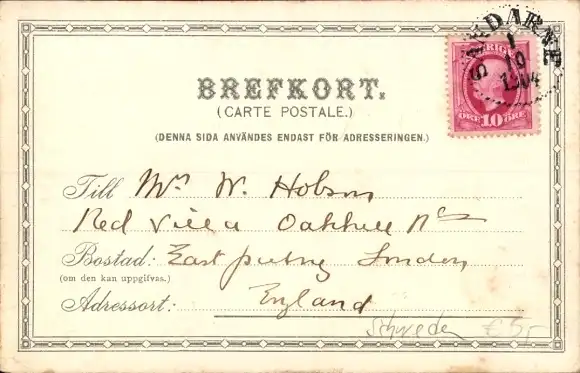 SANDARNE
1
10
1904
SVERIGE
10
ÖRE ÖRE
BREFKORT.
(CARTE POSTALE.)
(DENNA SIDA ANVÄNDES ENDAST FÖR ADRESSERINGEN.)
Till Mrs W. Hobson
Red Villa Oakhill Rd
Bostad: East putney London
(om den kan uppgifvas.)
Adressort: England
Schweden €5,-